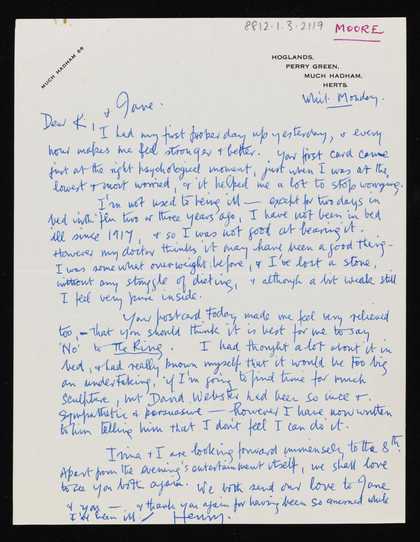 8812.1.3.2119
MOORE
MUCH HADHAM 66
HOGLANDS,
PERRY GREEN,
MUCH HADHAM,
HERTS.
Whit. Monday.
Dear K, & Jane.
I had my first proper day up yesterday, & every
hour makes me feel stronger & better. Your first card came
just at the right psychological moment, just when I was at the
lowest & most worried, & it helped me a lot to stop worrying.
I'm not used to being ill — except for two days in
bed with 'flu two or three years ago, I have not been in bed
ill since 1917, & so I was not good at bearing it.
However my doctor thinks it may have been a good thing —
I was somewhat overweight before, & I've lost a stone,
without any struggle of dieting, & although a bit weak still
I feel very pure inside.
Your postcard today made me feel very relieved
too, — that you should think it is best for me to say
'No' to The Ring. I had thought a lot about it in
bed, & had really known myself that it would be too big
an undertaking, if I'm going to find time for much
sculpture, but David Webster had been so nice &
sympathetic & persuasive — however I have now written
to him telling him that I don't feel I can do it.
Irina & I are looking forward immensely to the 8th.
Apart from the evening's entertainment itself, we shall love
to see you both again. We both send our love to Jane
& you — & thank you again for having been so concerned while
I've been ill / Henry.